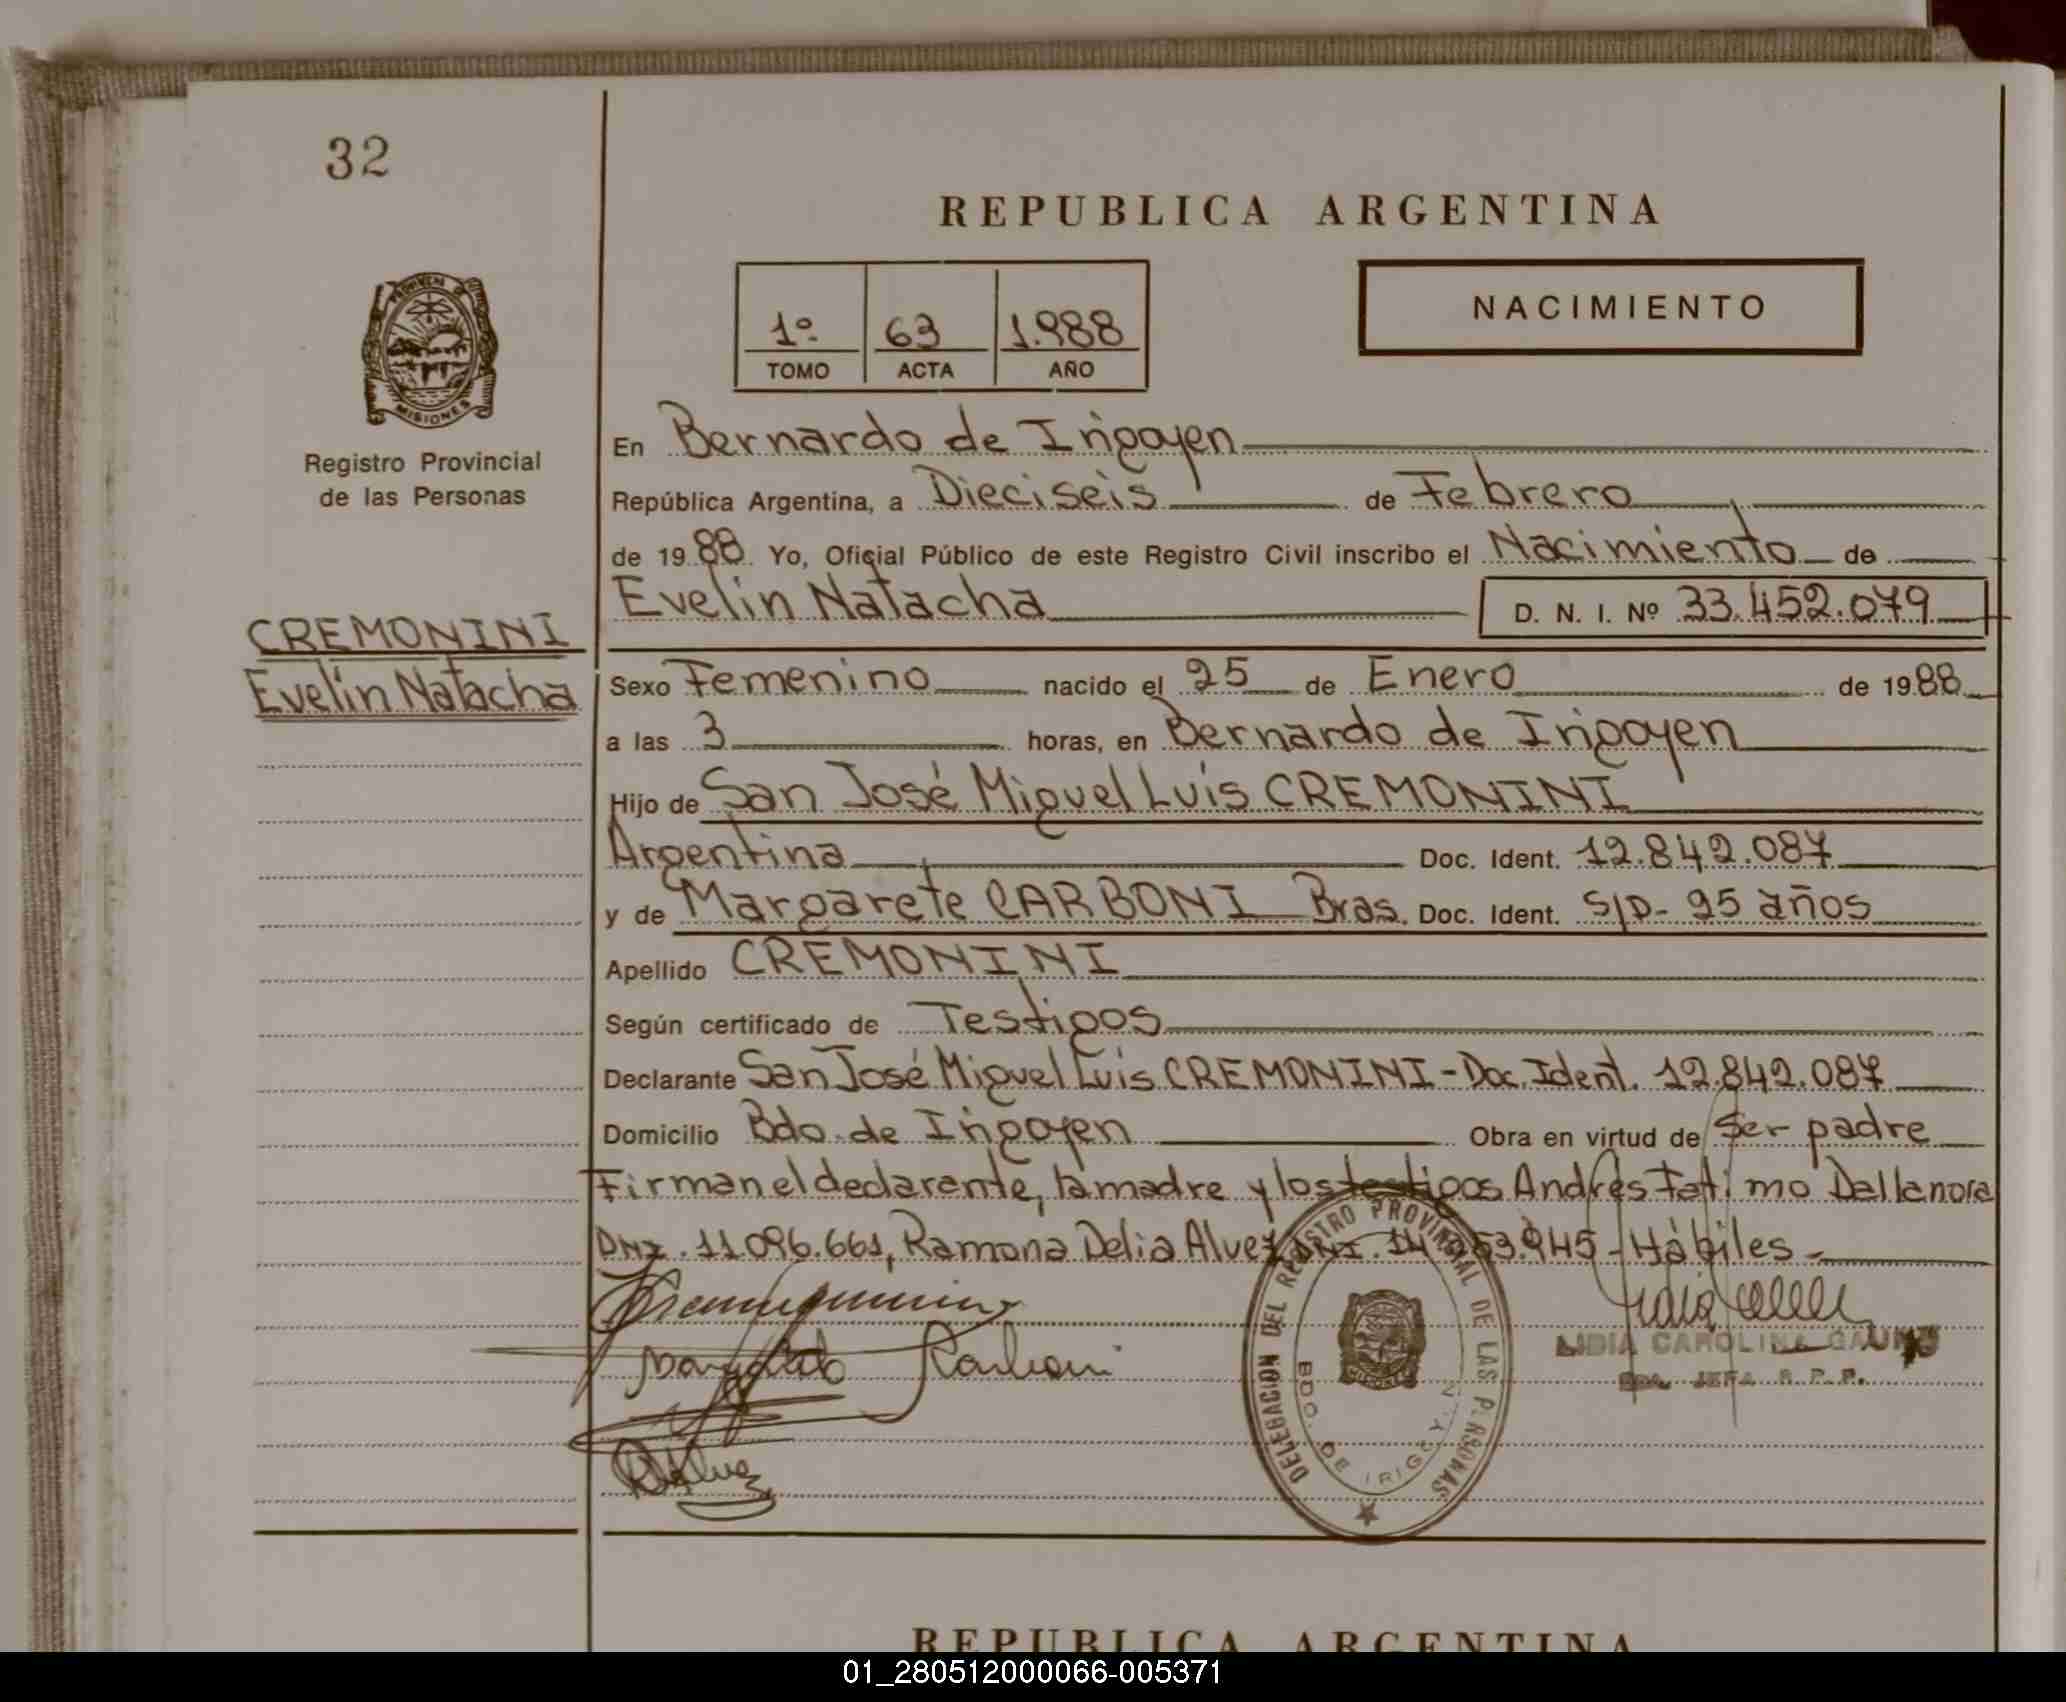 32
REPUBLICA ARGENTINA
NACIMIENTO
1º 63 1.988
TOMO ACTA AÑO
PROVINCIA DE
MISIONES
Registro Provincial
de las Personas
En Bernardo de Irigoyen
República Argentina, a Dieciseis de Febrero
de 1988 Yo, Oficial Público de este Registro Civil inscribo el Nacimiento de
Evelin Natacha D. N. I. Nº 33.452.079
CREMONINI
Evelin Natacha
Sexo Femenino nacido el 25 de Enero de 1988
a las 3 horas, en Bernardo de Irigoyen
Hijo de San José Miguel Luis CREMONINI
Argentina Doc. Ident. 12.842.087
y de Margarete CARBONI Bras. Doc. Ident. S/D- 25 años
Apellido CREMONINI
Según certificado de Testigos
Declarante San José Miguel Luis CREMONINI - Doc. Ident. 12.842.087
Domicilio Bdo. de Irigoyen Obra en virtud de Ser padre
Firman el declarante, la madre y los testigos Andrés Fatimo Dallanora
DNI. 11.096.661, Ramona Delia Alvez DNI. 14. 53.945 - Hábiles -
Carboni
RDAlvez
DELEGACION DEL REGISTRO PROVINCIAL DE LAS P.RSONAS
BDO. DE IRIGCY.N
LIDIA CAROLINA
JEFA R.P.P.
REPUBLICA ARGENTINA
01_280512000066-005371